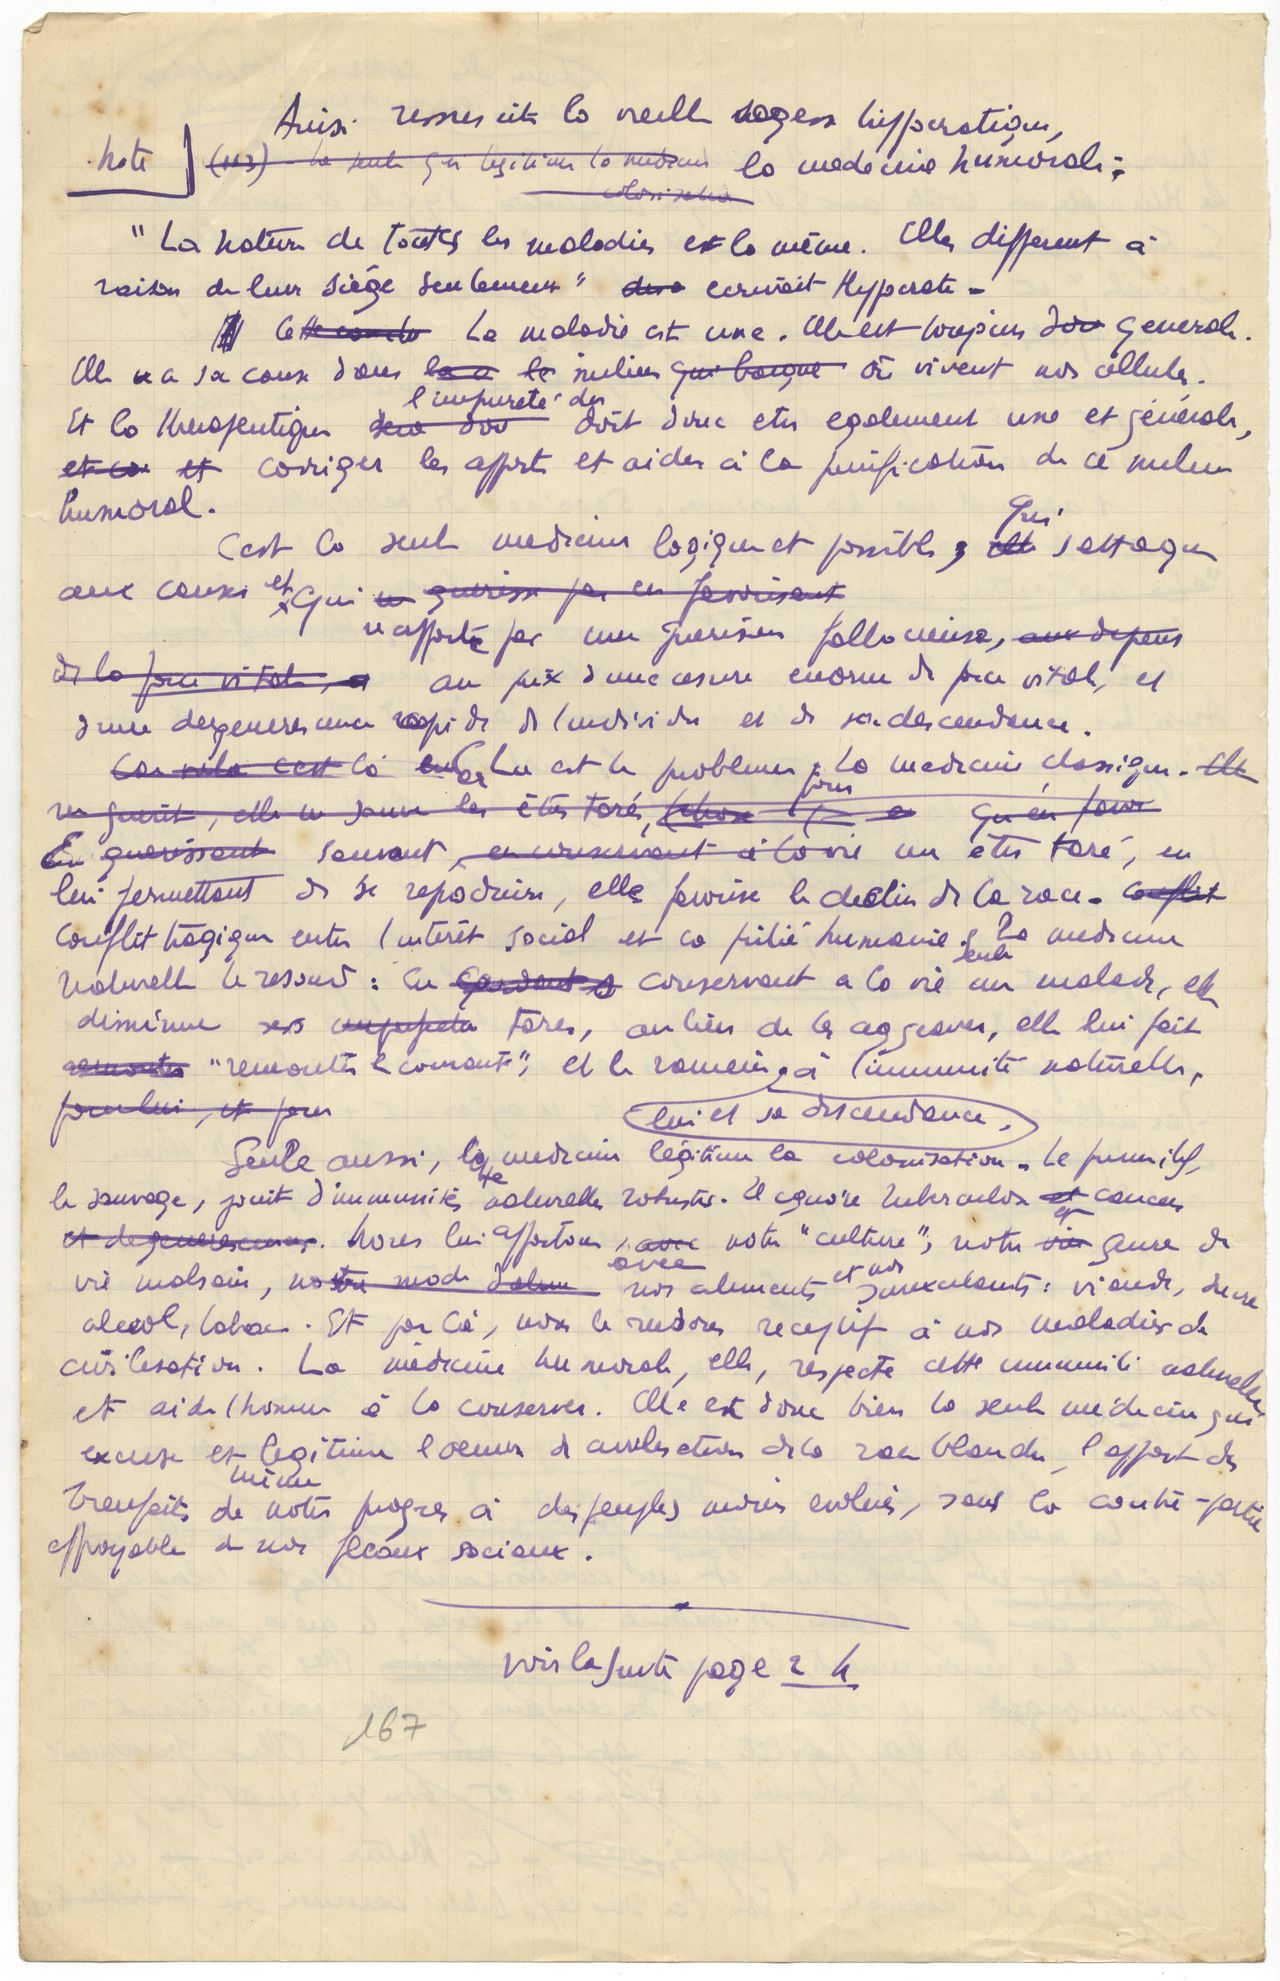 Ainsi ressuscite la vieille sagesse hippocratique,
Note ] (123) - La seule qui légitime la médecine la médecine humorale ;
colonisation
" La nature de toutes les maladies est la même. Elles different à
raison de leur siège seulement " ecrivait Hyppocrate -
La maladie est une. Elle est toujours generale.
Elle a sa cause dans le milieu où vivent nos cellules.
l'impureté des
Et la therapeutique doit donc etre egalement une et générale,
et corriger les apports et aider à la purification de ce milieu
humoral.
qui
C'est la seule medecine logique et possible, s'attaque
aux causes et qui
apporte par une guerison fallacieuse, aux depens
de la force vitale, au prix d'une usure enorme de force vitale, et
d'une degenerescence rapide de l'individu et de sa descendance.
Car cela c'est là Car tel est le probleme : La medecine classique. Elle
ne guérit, elle ne sauve les êtres tarés,
En guerissant sauvant, en conservant à la vie un etre taré, en
lui permettant de se reproduire, elle favorise le declin de la race - conflit
Conflit tragique entre l'intérêt social et la pitié humaine. La medecine
seule
naturelle le resoud : En conservant a la vie un malade, elle
diminue ses tares, au lieu de les aggraver, elle lui fait
remonter "remonter le courant", et le ramene, à l'immunité naturelle,
pour lui, et pour
lui et sa descendance.
Seule aussi, cette medecine légitime la colonisation. Le primitif,
le sauvage, jouit d'immunités naturelles robustes. Il ignore tuberculose et cancer
et degenerescence. Nous lui apportons, avec notre "culture", notre genre de
avec
vie malsain, nos aliments et nos : viande, sucre
alcool, tabac. Et par là, nous le rendons receptif à nos maladies de
civilisation. La médecine humorale, elle, respecte cette immunité naturelle
et aide l'homme à la conserver. Elle est donc bien la seule médecine qui
excuse et légitime l'oeuvre de civilisation de la race blanche, l'apport des
même
bienfaits de notre progres à des peuples moins evolués, sans la contre-partie
effroyable de nos fléaux sociaux.
voir la suite page 24
167